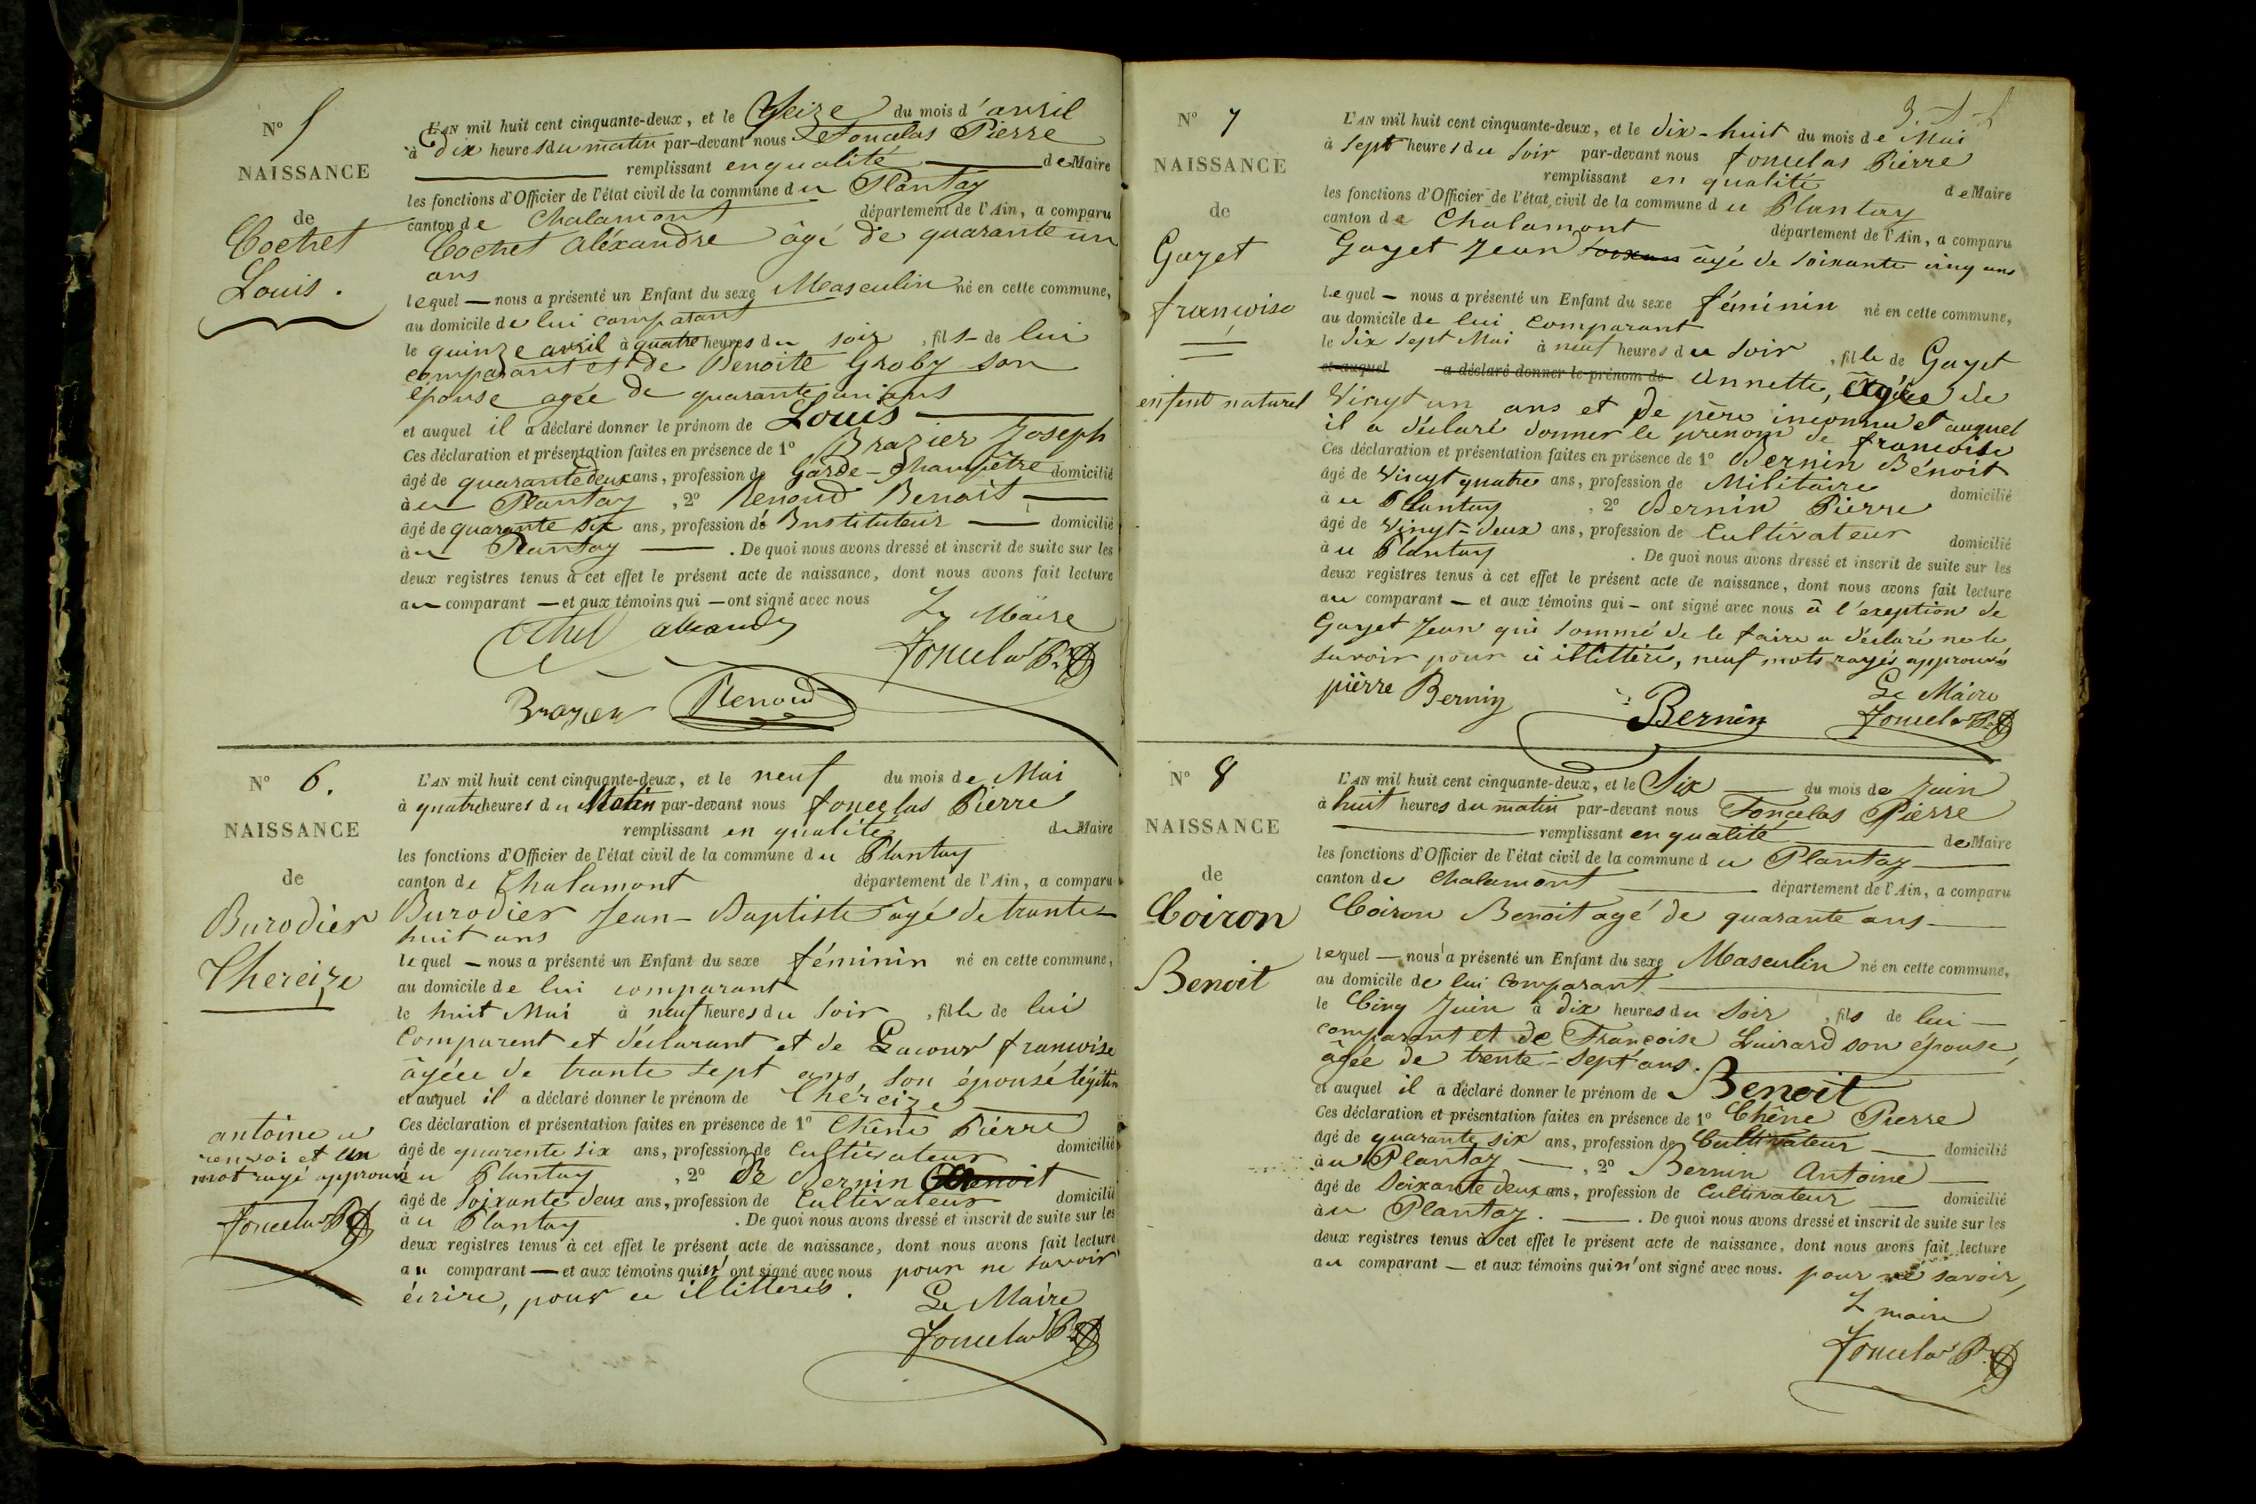 N° 5
NAISSANCE
de
Cochet
Louis.
L'AN mil huit cent cinquante-deux, et le Seize du mois d'avril
à dix heures du matin par-devant nous Foncelas Pierre
remplissant en qualité de Maire
les fonctions d'Officier de l'état civil de la commune du Plantay
canton de Chalamont département de l'Ain, a comparu
Cochet Aléxandre âgé de quarante un
ans
lequel — nous a présenté un Enfant du sexe Masculin né en cette commune,
au domicile de lui comparant
le quinze avril à quatre heures du soir, fils de lui
comparant et de Benoite Groby son
épouse agée de quarante un ans
et auquel il a déclaré donner le prénom de Louis
Ces déclaration et présentation faites en présence de 1° Brazier Joseph
âgé de quarante deux ans, profession de Garde-Champêtre domicilié
à u Plantay, 2° Renoud Benoit
âgé de quarante six ans, profession d' Instituteur domicilié
à u Plantay. De quoi nous avons dressé et inscrit de suite sur les
deux registres tenus à cet effet le présent acte de naissance, dont nous avons fait lecture
au comparant — et aux témoins qui — ont signé avec nous
Le Maire
Foncelas Pre
Brazier Renoud
N° 6.
NAISSANCE
de
Burodier
Thereize
L'AN mil huit cent cinquante-deux, et le neuf du mois de Mai
à quatre heures du Matin par-devant nous foncelas Pierre
remplissant en qualité de Maire
les fonctions d'Officier de l'état civil de la commune du Plantay
canton de Chalamont département de l'Ain, a comparu
Burodier Jean-Baptiste âgé de trante-
huit ans
lequel — nous a présenté un Enfant du sexe féminin né en cette commune,
au domicile de lui comparant
le huit Mai à neuf heures du soir, fille de lui
Comparent et déclarant et de Lacour françoise
âgée de trante sept ans, son épouse légitime
et auquel il a déclaré donner le prénom de Théreize
Ces déclaration et présentation faites en présence de 1° Chêne Pierre
âgé de quarente six ans, profession de Cultivateur domicilié
à u Plantay, 2° de Bernin Benoit
âgé de soixante deux ans, profession de Cultivateur domicilié
à u Plantay. De quoi nous avons dressé et inscrit de suite sur les
deux registres tenus à cet effet le présent acte de naissance, dont nous avons fait lecture
au comparant — et aux témoins qui n'ont signé avec nous pour ne savoir
écrire, pour ce illittérés.
antoine un
renvoi et un
mot rayé approuvé
Foncelas Pre
Le Maire
Foncelas Pre
N° 7
NAISSANCE
de
Gayet
françoise
enfent naturel
L'AN mil huit cent cinquante-deux, et le dix-huit du mois de Mai
à sept heures du soir par-devant nous foncelas Pierre
remplissant en qualité de Maire
les fonctions d'Officier de l'état civil de la commune du Plantay
canton de Chalamont département de l'Ain, a comparu
Gayet Jean âgé de soixante cinq ans
lequel — nous a présenté un Enfant du sexe féminin né en cette commune,
au domicile de lui comparant
le dix sept Mai à neuf heures du soir, fille de Gayet
et auquel a déclaré donner le prénom de Annette, âgée de
Vingt un ans et de père inconnu et auquel
il a déclaré donner le prénom de françoise
Ces déclaration et présentation faites en présence de 1° Bernin Bénoit
âgé de Vingt quatre ans, profession de Militaire domicilié
à u Plantay, 2° Bernin Pierre
âgé de Vingt-deux ans, profession de Cultivateur domicilié
à u Plantay. De quoi nous avons dressé et inscrit de suite sur les
deux registres tenus à cet effet le présent acte de naissance, dont nous avons fait lecture
au comparant — et aux témoins qui — ont signé avec nous à l'exeption de
Gayet Jean qui sommé de le faire a déclaré ne le
savoir pour ce illittéré, neuf mots rayés approuvés
pierre Bernin Bernin Le Maire
Foncelas Pre
N° 8
NAISSANCE
de
Coiron
Benoit
L'AN mil huit cent cinquante-deux, et le Six du mois de Juin
à huit heures du matin par-devant nous Foncelas Pierre
remplissant en qualité de Maire
les fonctions d'Officier de l'état civil de la commune du Plantay
canton de Chalamont département de l'Ain, a comparu
Coiron Benoit agé de quarante ans
lequel — nous a présenté un Enfant du sexe Masculin né en cette commune,
au domicile de lui comparant
le Cinq Juin à dix heures du soir, fils de lui
comparant et de Françoise Luirard son épouse,
âgée de trente-sept ans.
et auquel il a déclaré donner le prénom de Benoit
Ces déclaration et présentation faites en présence de 1° Chêne Pierre
âgé de quarante six ans, profession de Cultivateur domicilié
à u Plantay, 2° Bernin Antoine
âgé de Soixante deux ans, profession de Cultivateur domicilié
à u Plantay. De quoi nous avons dressé et inscrit de suite sur les
deux registres tenus à cet effet le présent acte de naissance, dont nous avons fait lecture
au comparant — et aux témoins qui n'ont signé avec nous. pour ne savoir,
L maire
Foncelas Pre